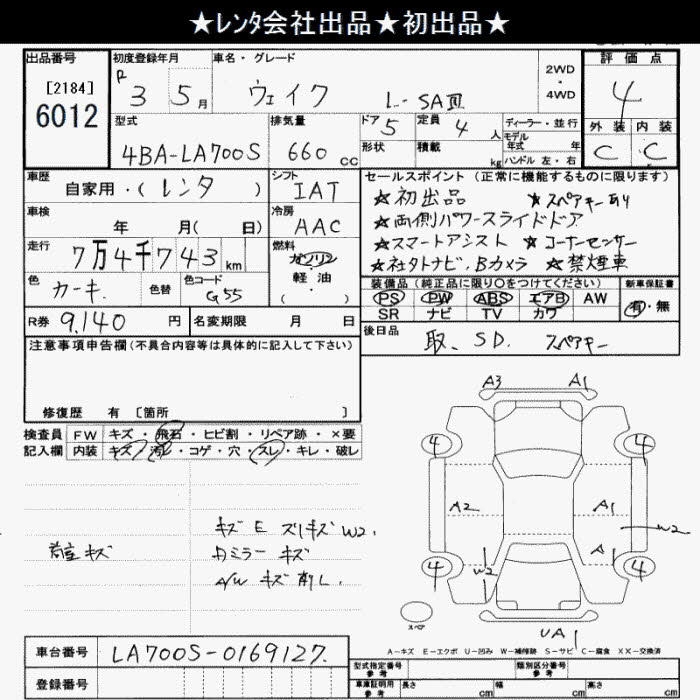 ★レンタ会社出品★初出品★
出品番号
[2184]
6012
初度登録年月
R 3 5月
車名・グレード
ウェイク L-SAⅢ
2WD
・
4WD
評価点
4
外装 内装
C C
型式
4BA-LA700S
排気量
660 cc
ドア 5
形状
定員 4 人
積載 kg
ディーラー・並行
モデル年式 年
ハンドル 左・右
車歴
自家用・(レンタ)
シフト
IAT
車検
年 月( 日)
冷房
AAC
走行
7万4千743 km
燃料
ガソリン
・
軽油
・( )
色
カーキ
色替
色コード
G55
セールスポイント(正常に機能するものに限ります)
★初出品 ★スペアキーあり
★両側パワースライドドア
★スマートアシスト ★コーナーセンサー
★社外ナビ、Bカメラ ★禁煙車
装備品(純正品に限り○をつけてください)
PS PW ABS エアB AW
SR ナビ TV カワ
新車保証書
有・無
R券 9,140 円
名変期限 月 日
後日品
取、SD. スペアキー
注意事項申告欄(不具合内容等は具体的に記入して下さい)
修復歴 有 [箇所 ]
検査員
記入欄
FW キズ・飛石・ヒビ割・リペア跡・×要
内装 キズ・汚レ・コゲ・穴・スレ・キレ・破レ
キズ E スリキズ W2.
荷室キズ
カミラー キズ
A/W キズ 削レ.
A3 A1
4 4
A2 A1
W2
A
4 W2 4
スペア
UA1
A-キズ E-エクボ U-凹み W-補修跡 S-サビ C-腐食 XX-交換済
車台番号
LA700S-0169127.
登録番号
型式指定番号
参考
類別区分番号
参考
車庫証明用
参考
長さ cm 幅 cm 高さ cm